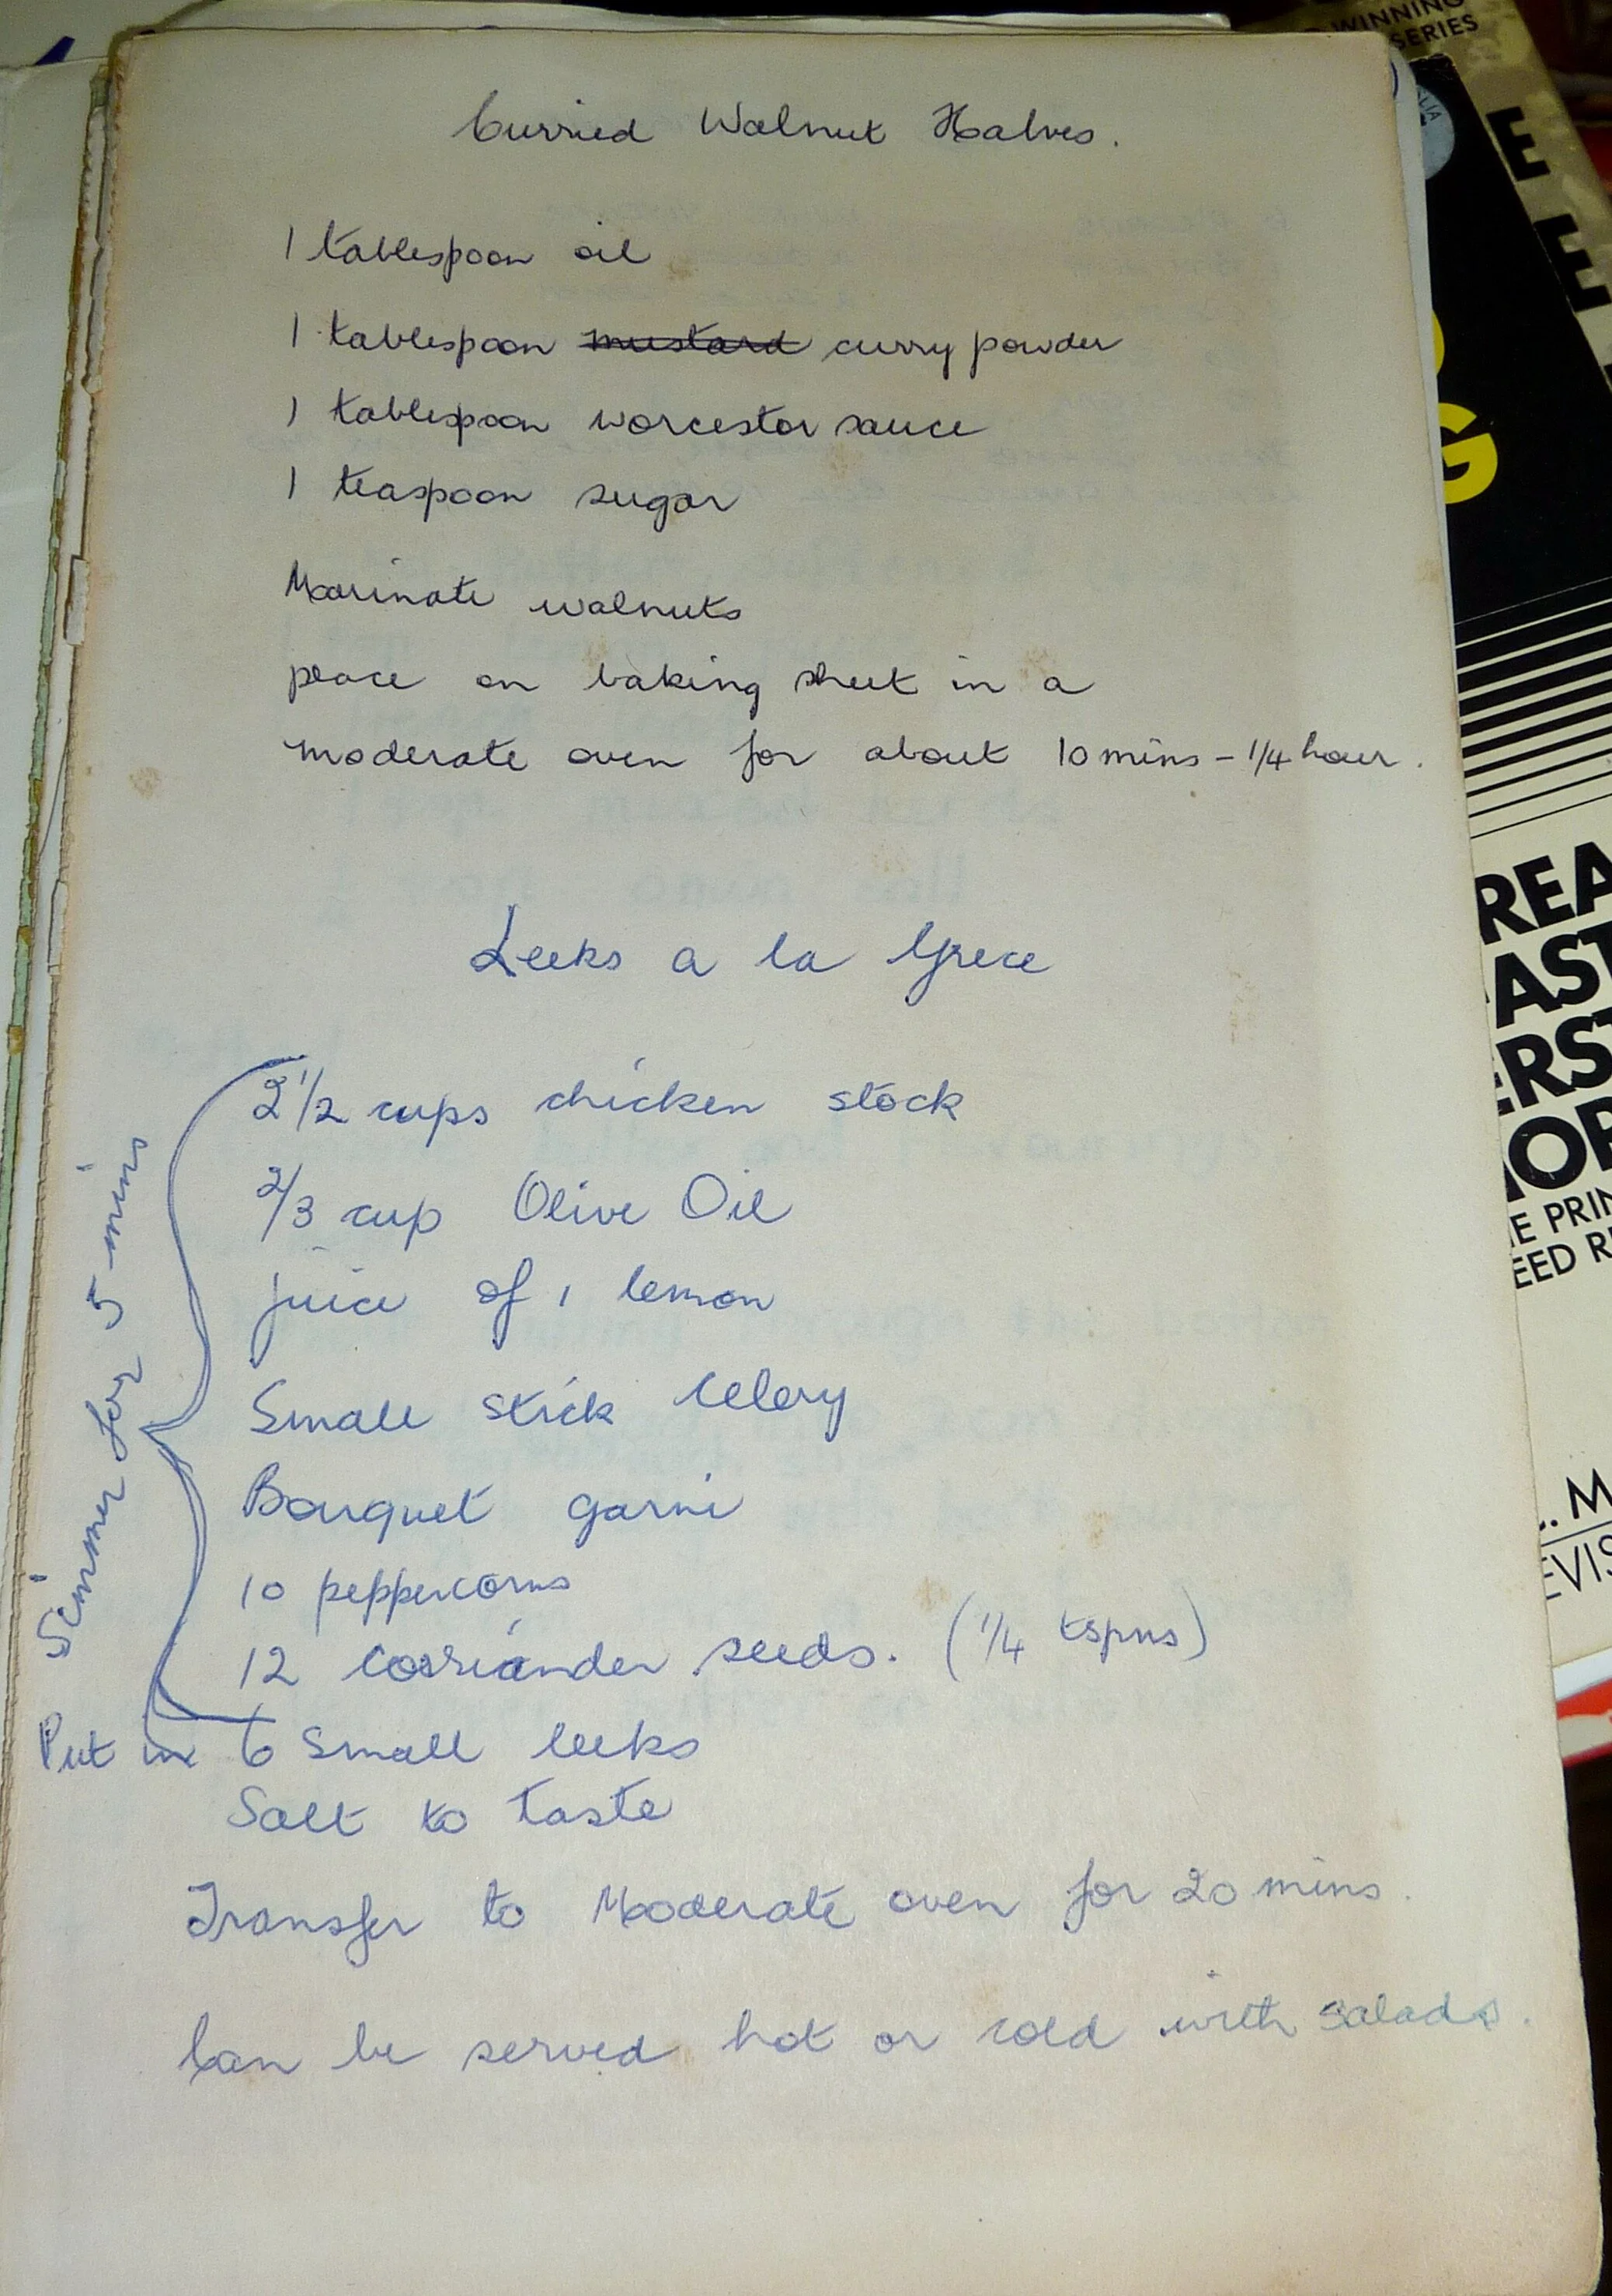 Curried Walnut Halves.
1 tablespoon oil
1 tablespoon mustard curry powder
1 tablespoon worcester sauce
1 teaspoon sugar
Marinate walnuts
place on baking sheet in a
moderate oven for about 10 mins - 1/4 hour.
Leeks a la Grece
2 1/2 cups chicken stock
2/3 cup Olive Oil
juice of 1 lemon
Small stick Celery
Bouquet garni
10 peppercorns
12 corriander seeds. (1/4 tspns)
Simmer for 5 mins
Put in 6 Small leeks
Salt to taste
Transfer to Moderate oven for 20 mins.
Can be served hot or cold with salads.
WINNING
SERIES
E
E
G
REA
AST
ERS
MOR
E PRIN
EED R
. M
EVIS